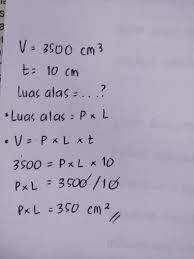 V = 3500 cm³
t = 10 cm
Luas alas = ...?
• Luas alas = P x L
• V = P x L x t
3500 = P x L x 10
P x L = 3500/10
P x L = 350 cm²